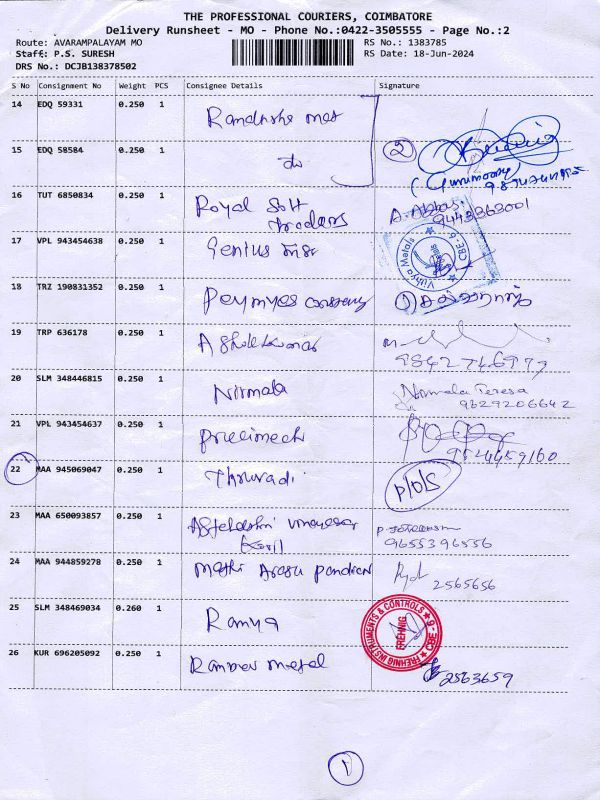 THE PROFESSIONAL COURIERS, COIMBATORE
Delivery Runsheet - MO - Phone No.:0422-3505555 - Page No.:2
Route: AVARAMPALAYAM MO
RS No.: 1383785
Staff: P.S. SURESH
RS Date: 18-Jun-2024
DRS No.: DCJB138378502
S No Consignment No Weight PCS Consignee Details Signature
14 EDQ 59331 0.250 1
15 EDQ 58584 0.250 1 do 2
16 TUT 6850834 0.250 1 Royal Soft Traders A. Abbas. 9443363001
17 VPL 943454638 0.250 1 Genius Vidhya Metals CBE-6
18 TRZ 190831352 0.250 1 1
19 TRP 636178 0.250 1 Ashokkumar 9842746977
20 SLM 348446815 0.250 1 Nirmala Nirmala Teresa 9629206642
21 VPL 943454637 0.250 1 precimech 9524459160
22 MAA 945069047 0.250 1 Thiruvadi P/O/S
23 MAA 650093857 0.250 1 9655396556
24 MAA 944859278 0.250 1 Mathi Arasu Pandian 2565656
25 SLM 348469034 0.260 1 Ramya FREHNIG INSTRUMENTS & CONTROLS FREHNIG CBE-6
26 KUR 696205092 0.250 1 2563659
1